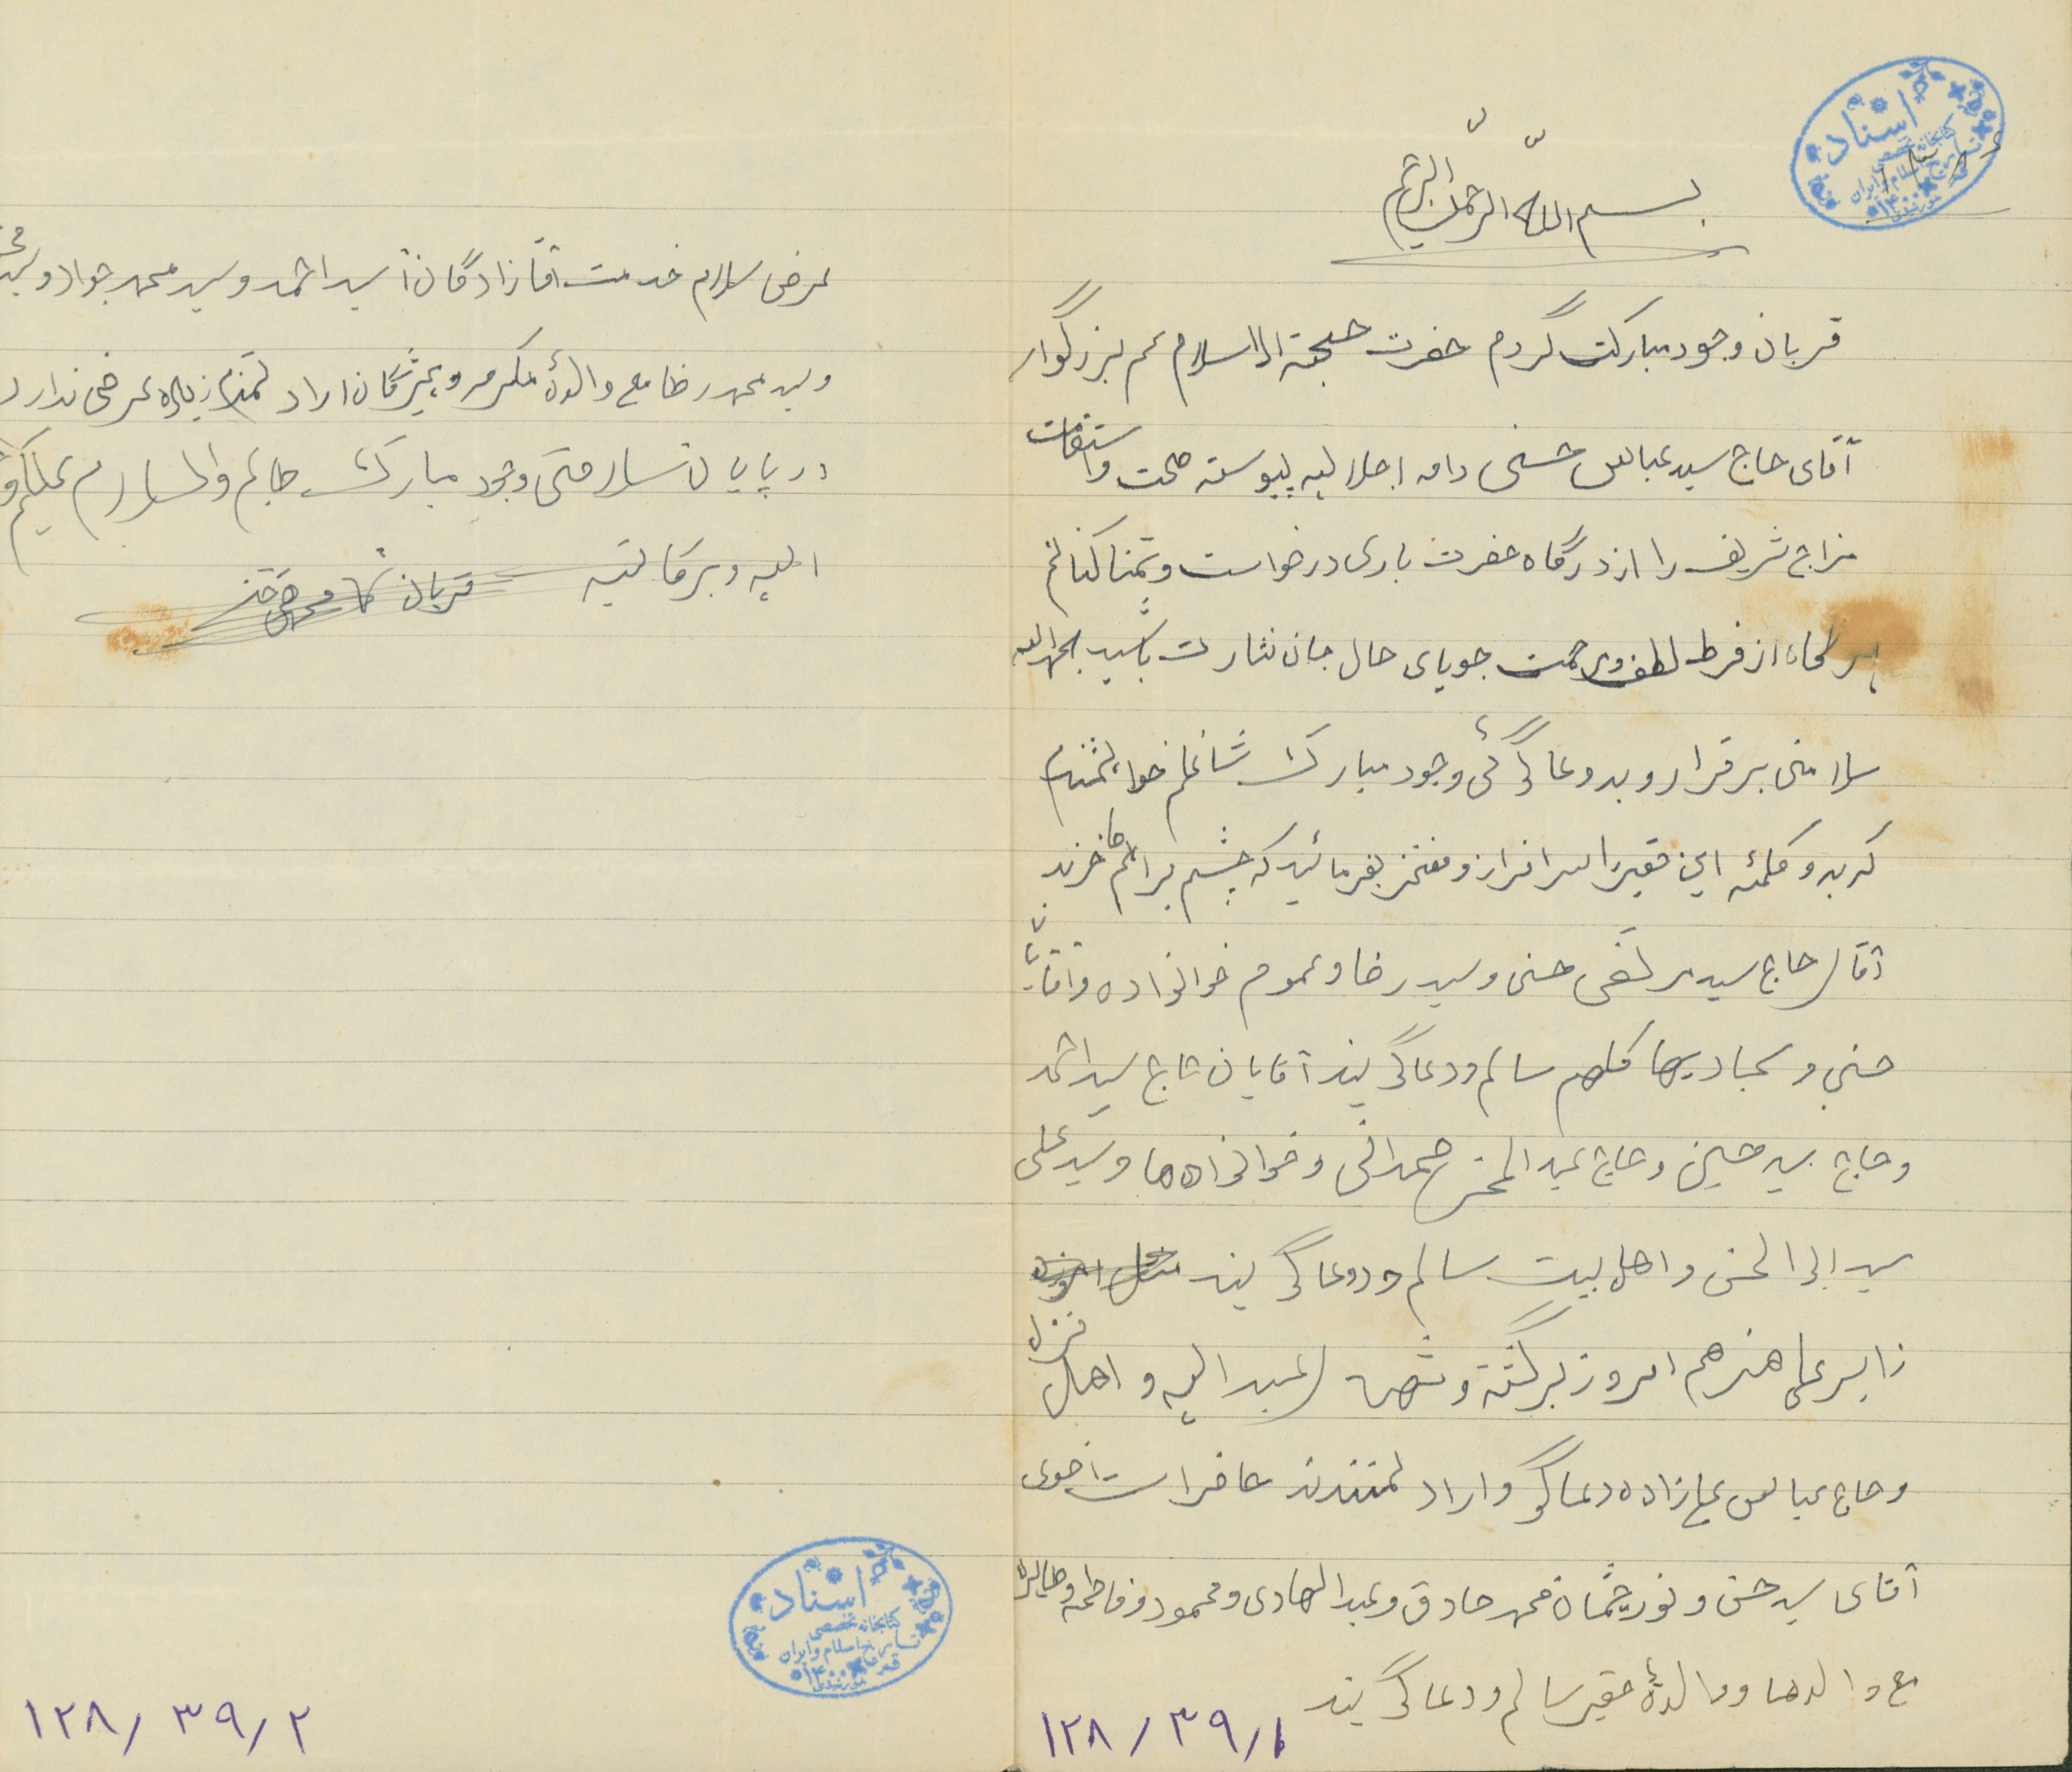 بسم الله الرحمن الرحیم
قربان وجود مبارکت گردم حضرت حجة الاسلام عم بزرگوار
آقای حاج سید عباس حسنی دامه اجلالیه پیوسته صحت واستقامت
مزاج شریف را از درگاه حضرت باری درخواست و تمنا کنانم
هرگاه از فرط لطف و مرحمت جویای حال جان نثارت باشید بحمدالله
سلامتی برقرار و بدعاگوئی وجود مبارک شاغلم خواهشمندم
که بدو کلمه این حقیر را سرافراز و مفتخر بفرمائید که چشم براهم
آقای حاج سید مرتضی حسنی و سید رضا و عموم خوانواده و آقایان
حسنی و سجادیها کلهم سالم و دعاگویند آقایان حاج سید احمد
و حاج سید حسین و حاج عبدالحسین صمدانی و خوانواده ها و سید علی
سید ابوالحسن و اهل بیت سالم و دعاگویند
زایر علی هنر هم امروز برگشته و مشهدی عبدالله و اهل منزل
و حاج عباس علی زاده دعاگو و ارادتمندند اخوی
آقای سید حسن و نورچشمان محمد صادق و عبدالهادی و محمود و فاطمه و طاهره
مع والدها و والدهٔ حقیر سالم و دعاگویند
۱۲۸/۳۹/۱
عرض سلام خدمت آقازادگان آسید احمد و سید محمد جواد و سید
و سید محمد رضا مع والدهٔ مکرمه و همشیرگان ارادتمندم زیاده عرضی ندارد
در پایان سلامتی وجود مبارک طالبم والسلام علیکم و
الله وبرکاته قربان شما
۱۲۸/۳۹/۲
اسناد
کتابخانه تخصصی
تاریخ اسلام و ایران
قم
اسناد
کتابخانه تخصصی
تاریخ اسلام و ایران
قم